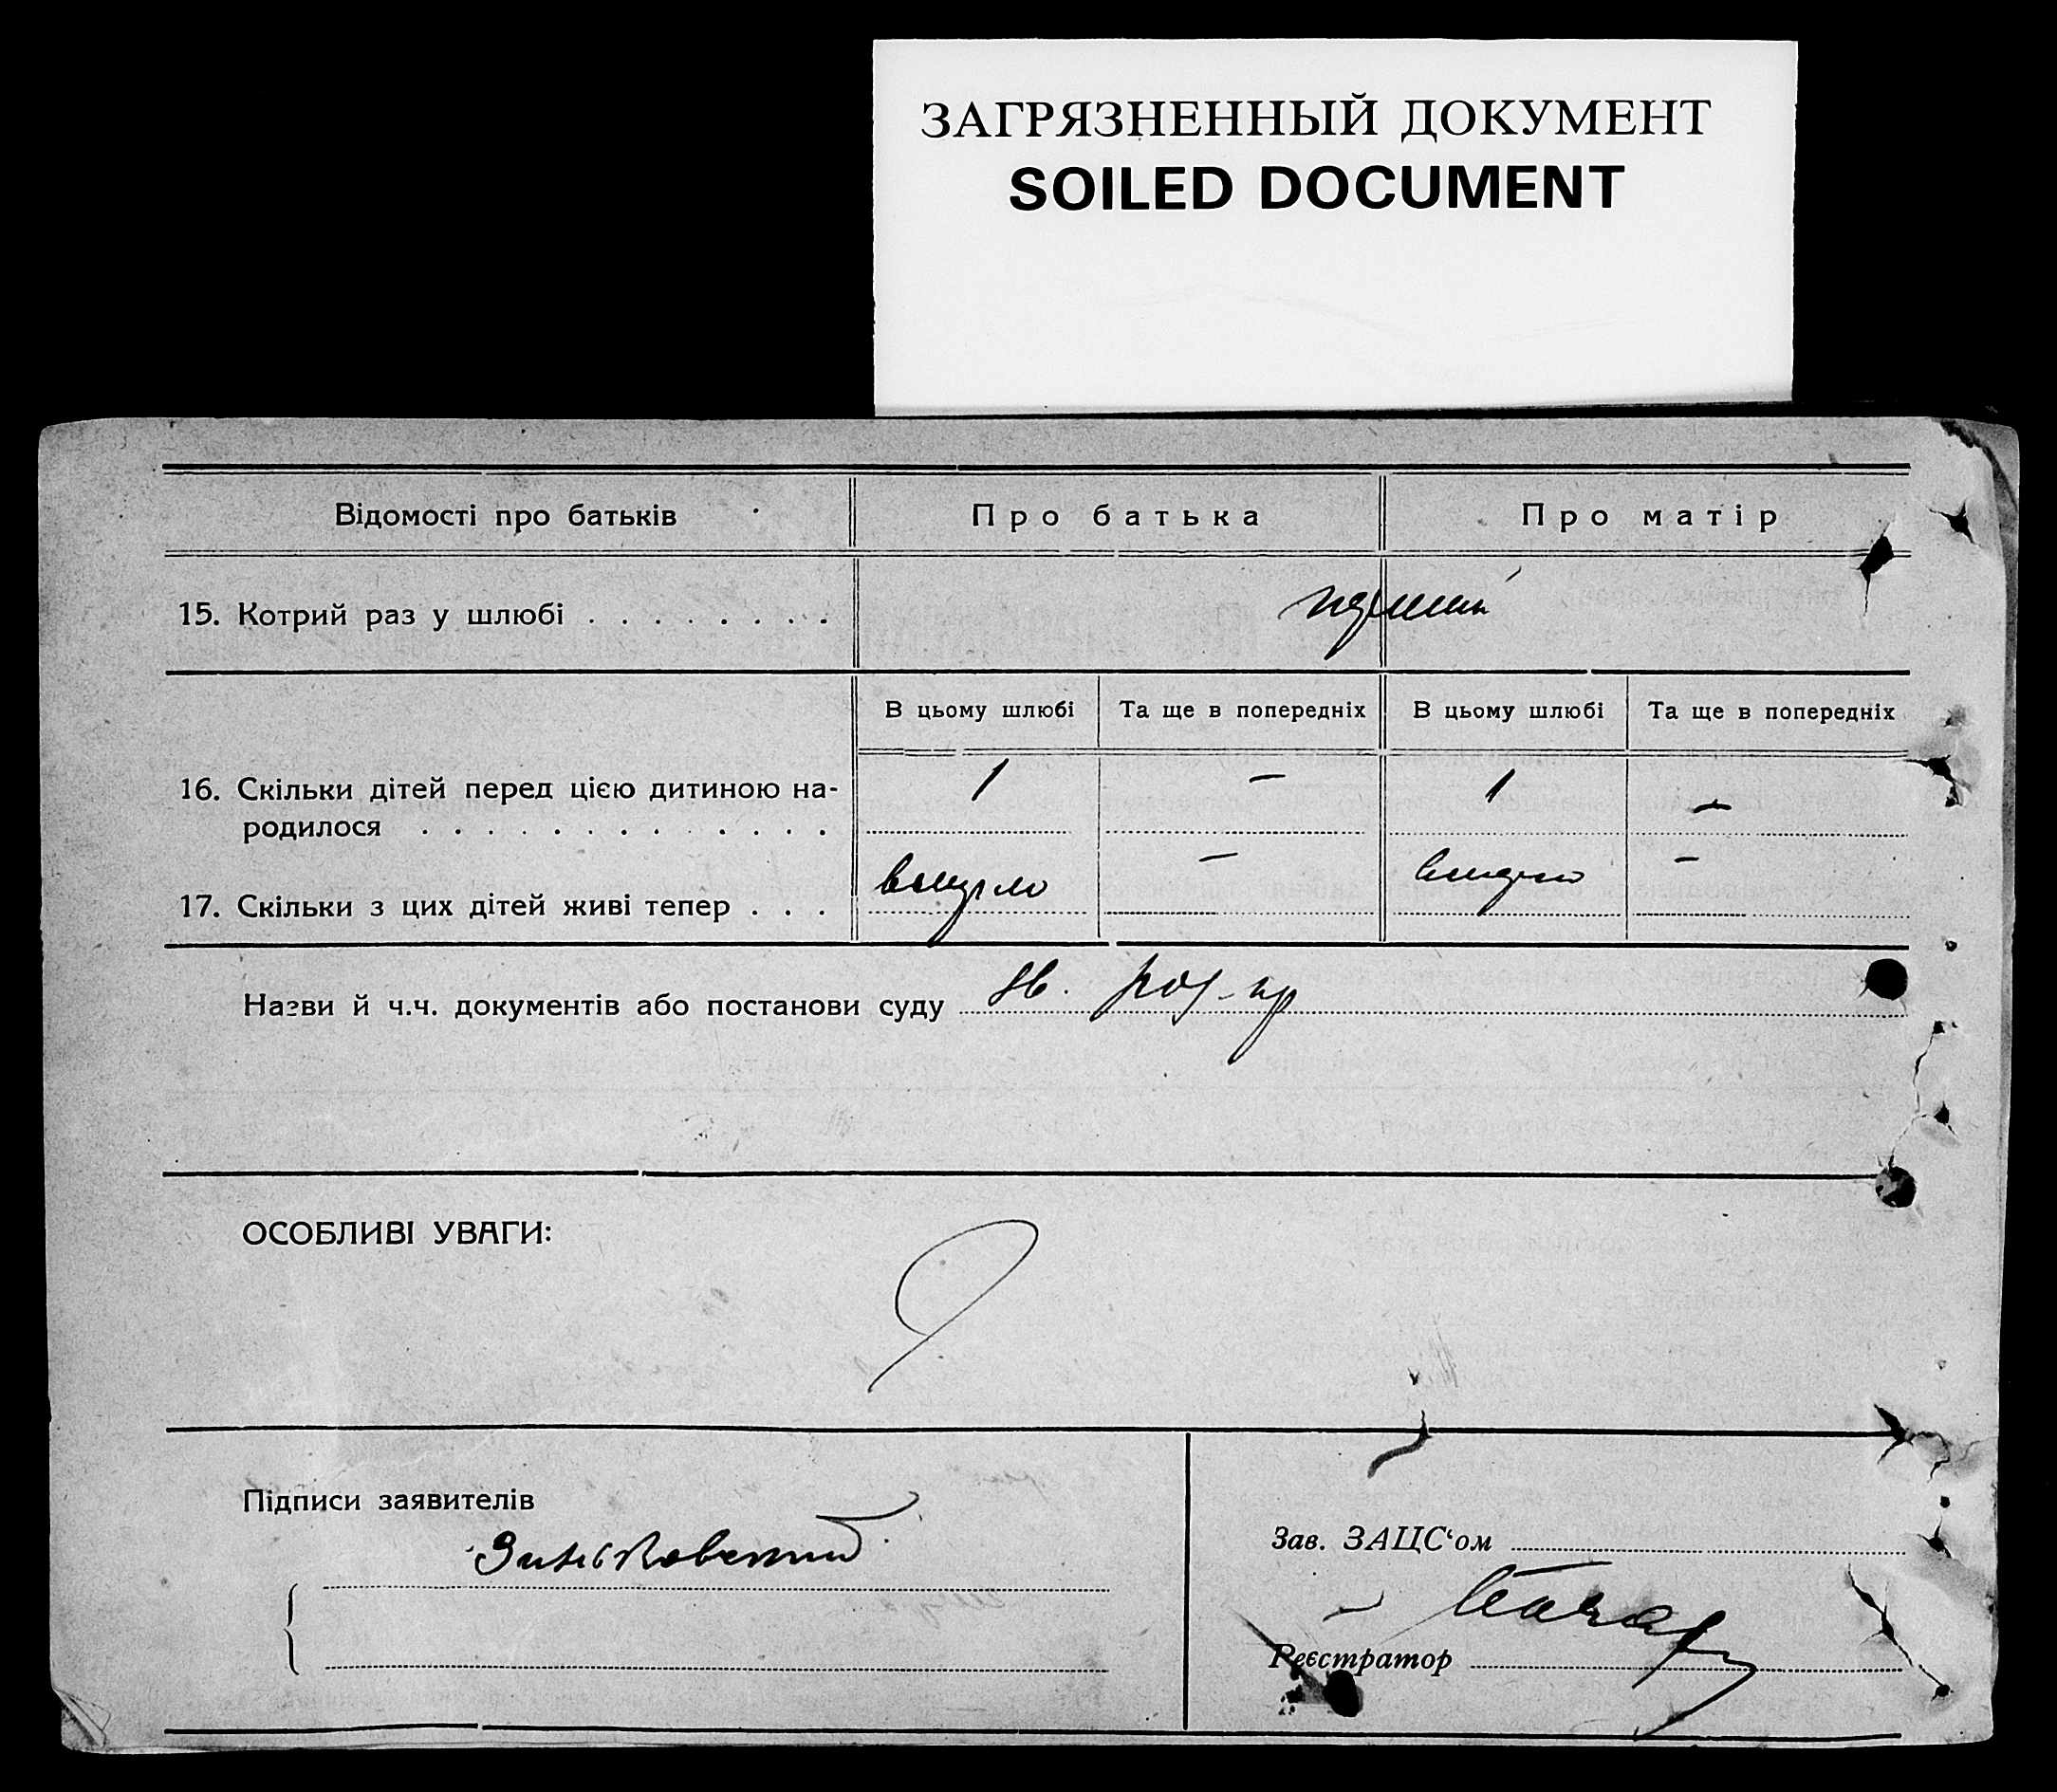 ЗАГРЯЗНЕННЫЙ ДОКУМЕНТ
SOILED DOCUMENT
Відомості про батьків
Про батька
Про матір
15. Котрий раз у шлюбі
перший
В цьому шлюбі
Та ще в попередніх
В цьому шлюбі
Та ще в попередніх
16. Скільки дітей перед цією дитиною на-
родилося
1 — 1 —
17. Скільки з цих дітей живі тепер
вмерло — вмерло —
Назви й ч.ч. документів або постанови суду
ОСОБЛИВІ УВАГИ:
Підписи заявителів
Зиньковский
Зав. ЗАЦС‘ом
Реєстратор